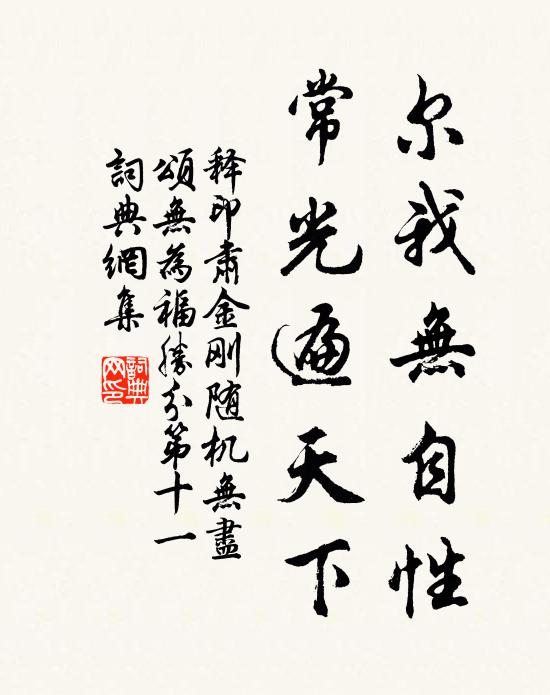 尔我無自性
常光遍天下
释印肃金刚随机無盡
頌無為福勝分第十一
詞典網集
詞典网印